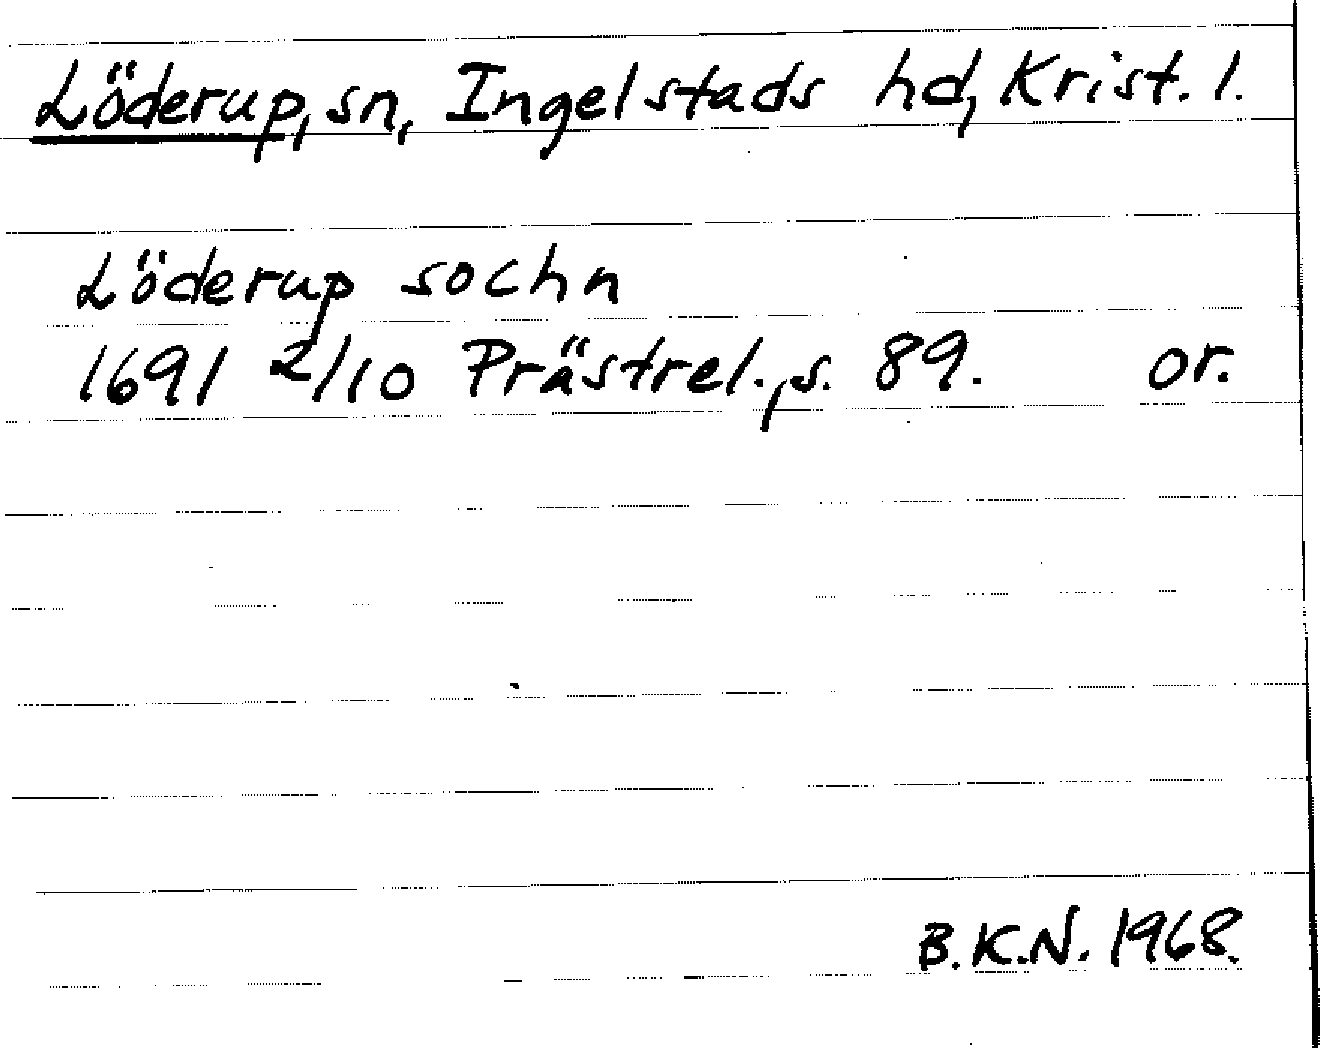 Löderup, sn, Ingelstads hd, Krist. l.
Löderup sochn
1691 2/10 Prästrel., s. 89. or.
B.K.N. 1968.